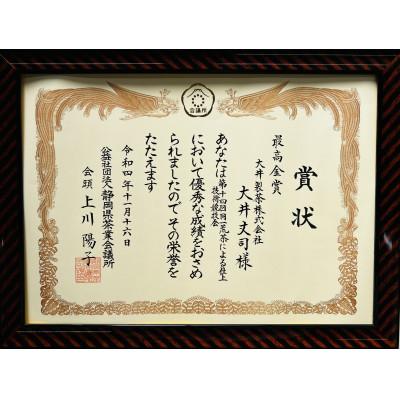 会議所
賞状
最高金賞
大井製茶株式会社
大井丈司様
あなたは第十四回同一荒茶による仕上
技術競技会
において優秀な成績をおさめ
られましたので その栄誉を
たたえます
令和四年十一月十六日
公益社団法人静岡県茶業会議所
会頭 上川陽子